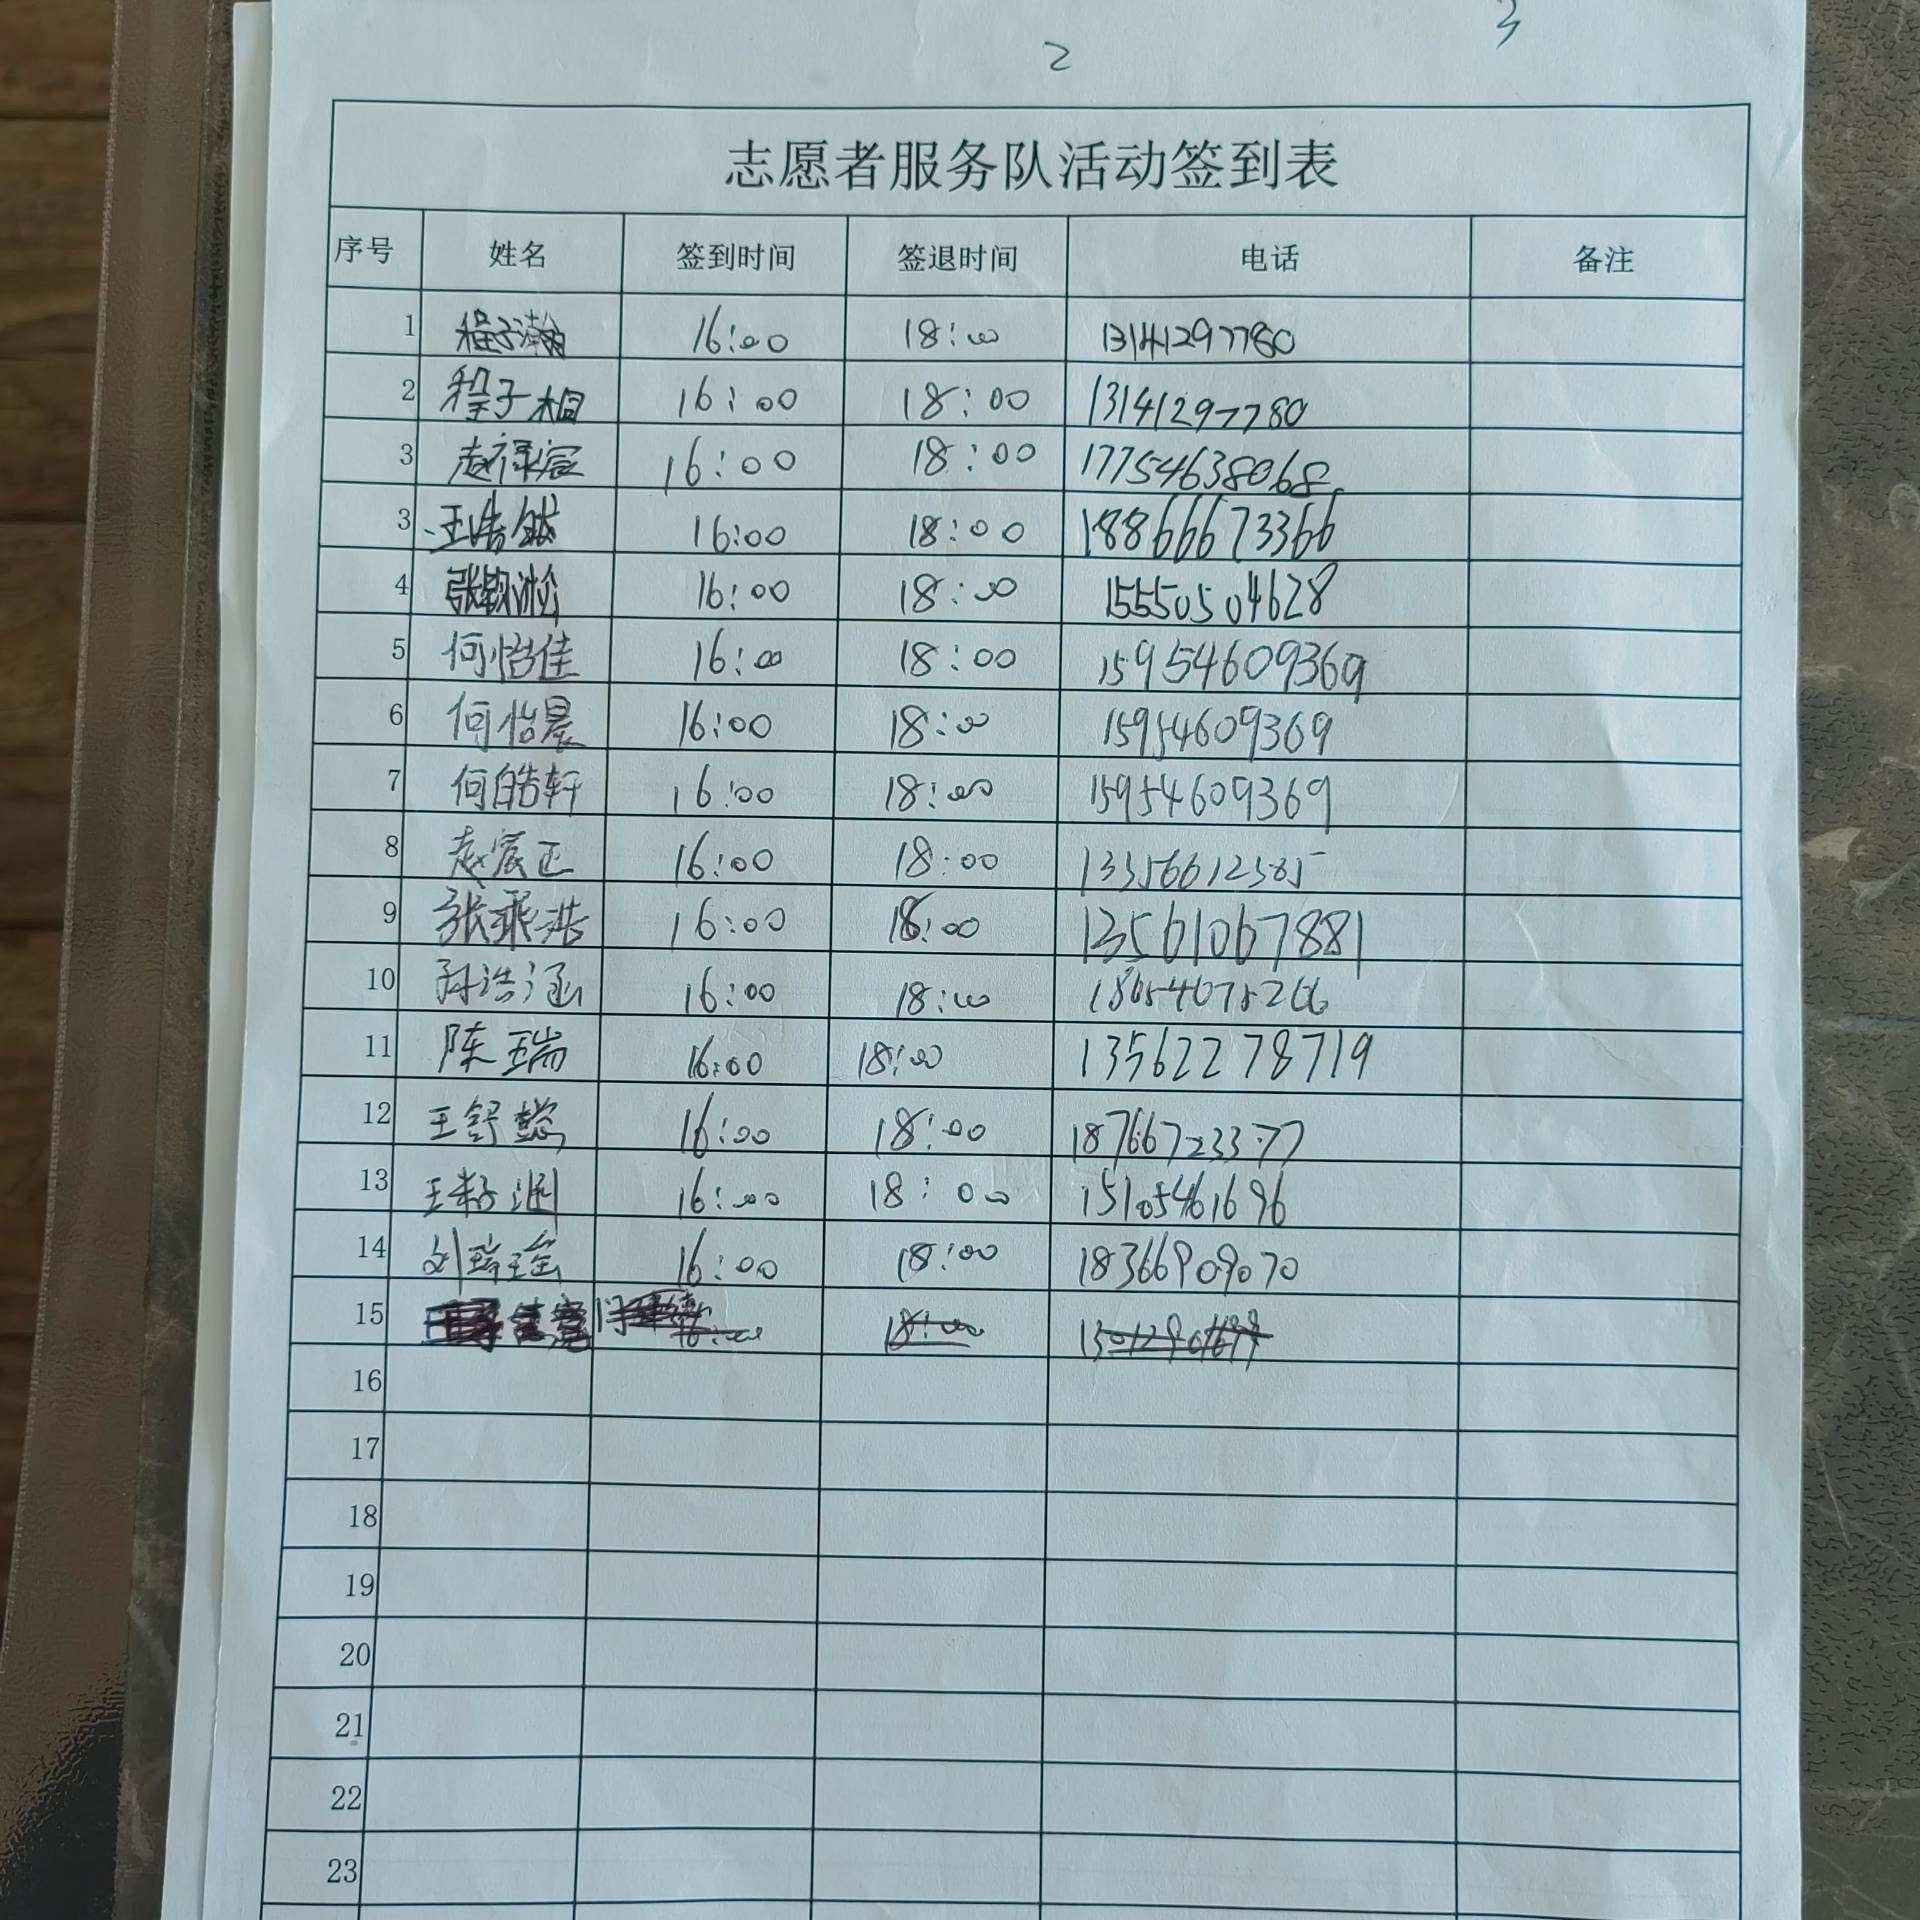 2
3
志愿者服务队活动签到表
序号 姓名 签到时间 签退时间 电话 备注
1 程子瀚 16:00 18:00 13141297780
2 程子桐 16:00 18:00 13141297780
3 赵禄宸 16:00 18:00 17754638068
3 王浩然 16:00 18:00 18866673366
4 16:00 18:00 15550504628
5 何怡佳 16:00 18:00 15954609369
6 何怡晨 16:00 18:00 15954609369
7 何皓轩 16:00 18:00 15954609369
8 赵宸正 16:00 18:00
9 张秉浩 16:00 18:00 13561067881
10 孙浩涵 16:00 18:00
11 陈瑞 16:00 18:00 13562278719
12 王舒懿 16:00 18:00 18766723377
13 王籽润 16:00 18:00 15105461696
14 刘瑞瑶 16:00 18:00 18366909070
15 16:00 18:00
16
17
18
19
20
21
22
23